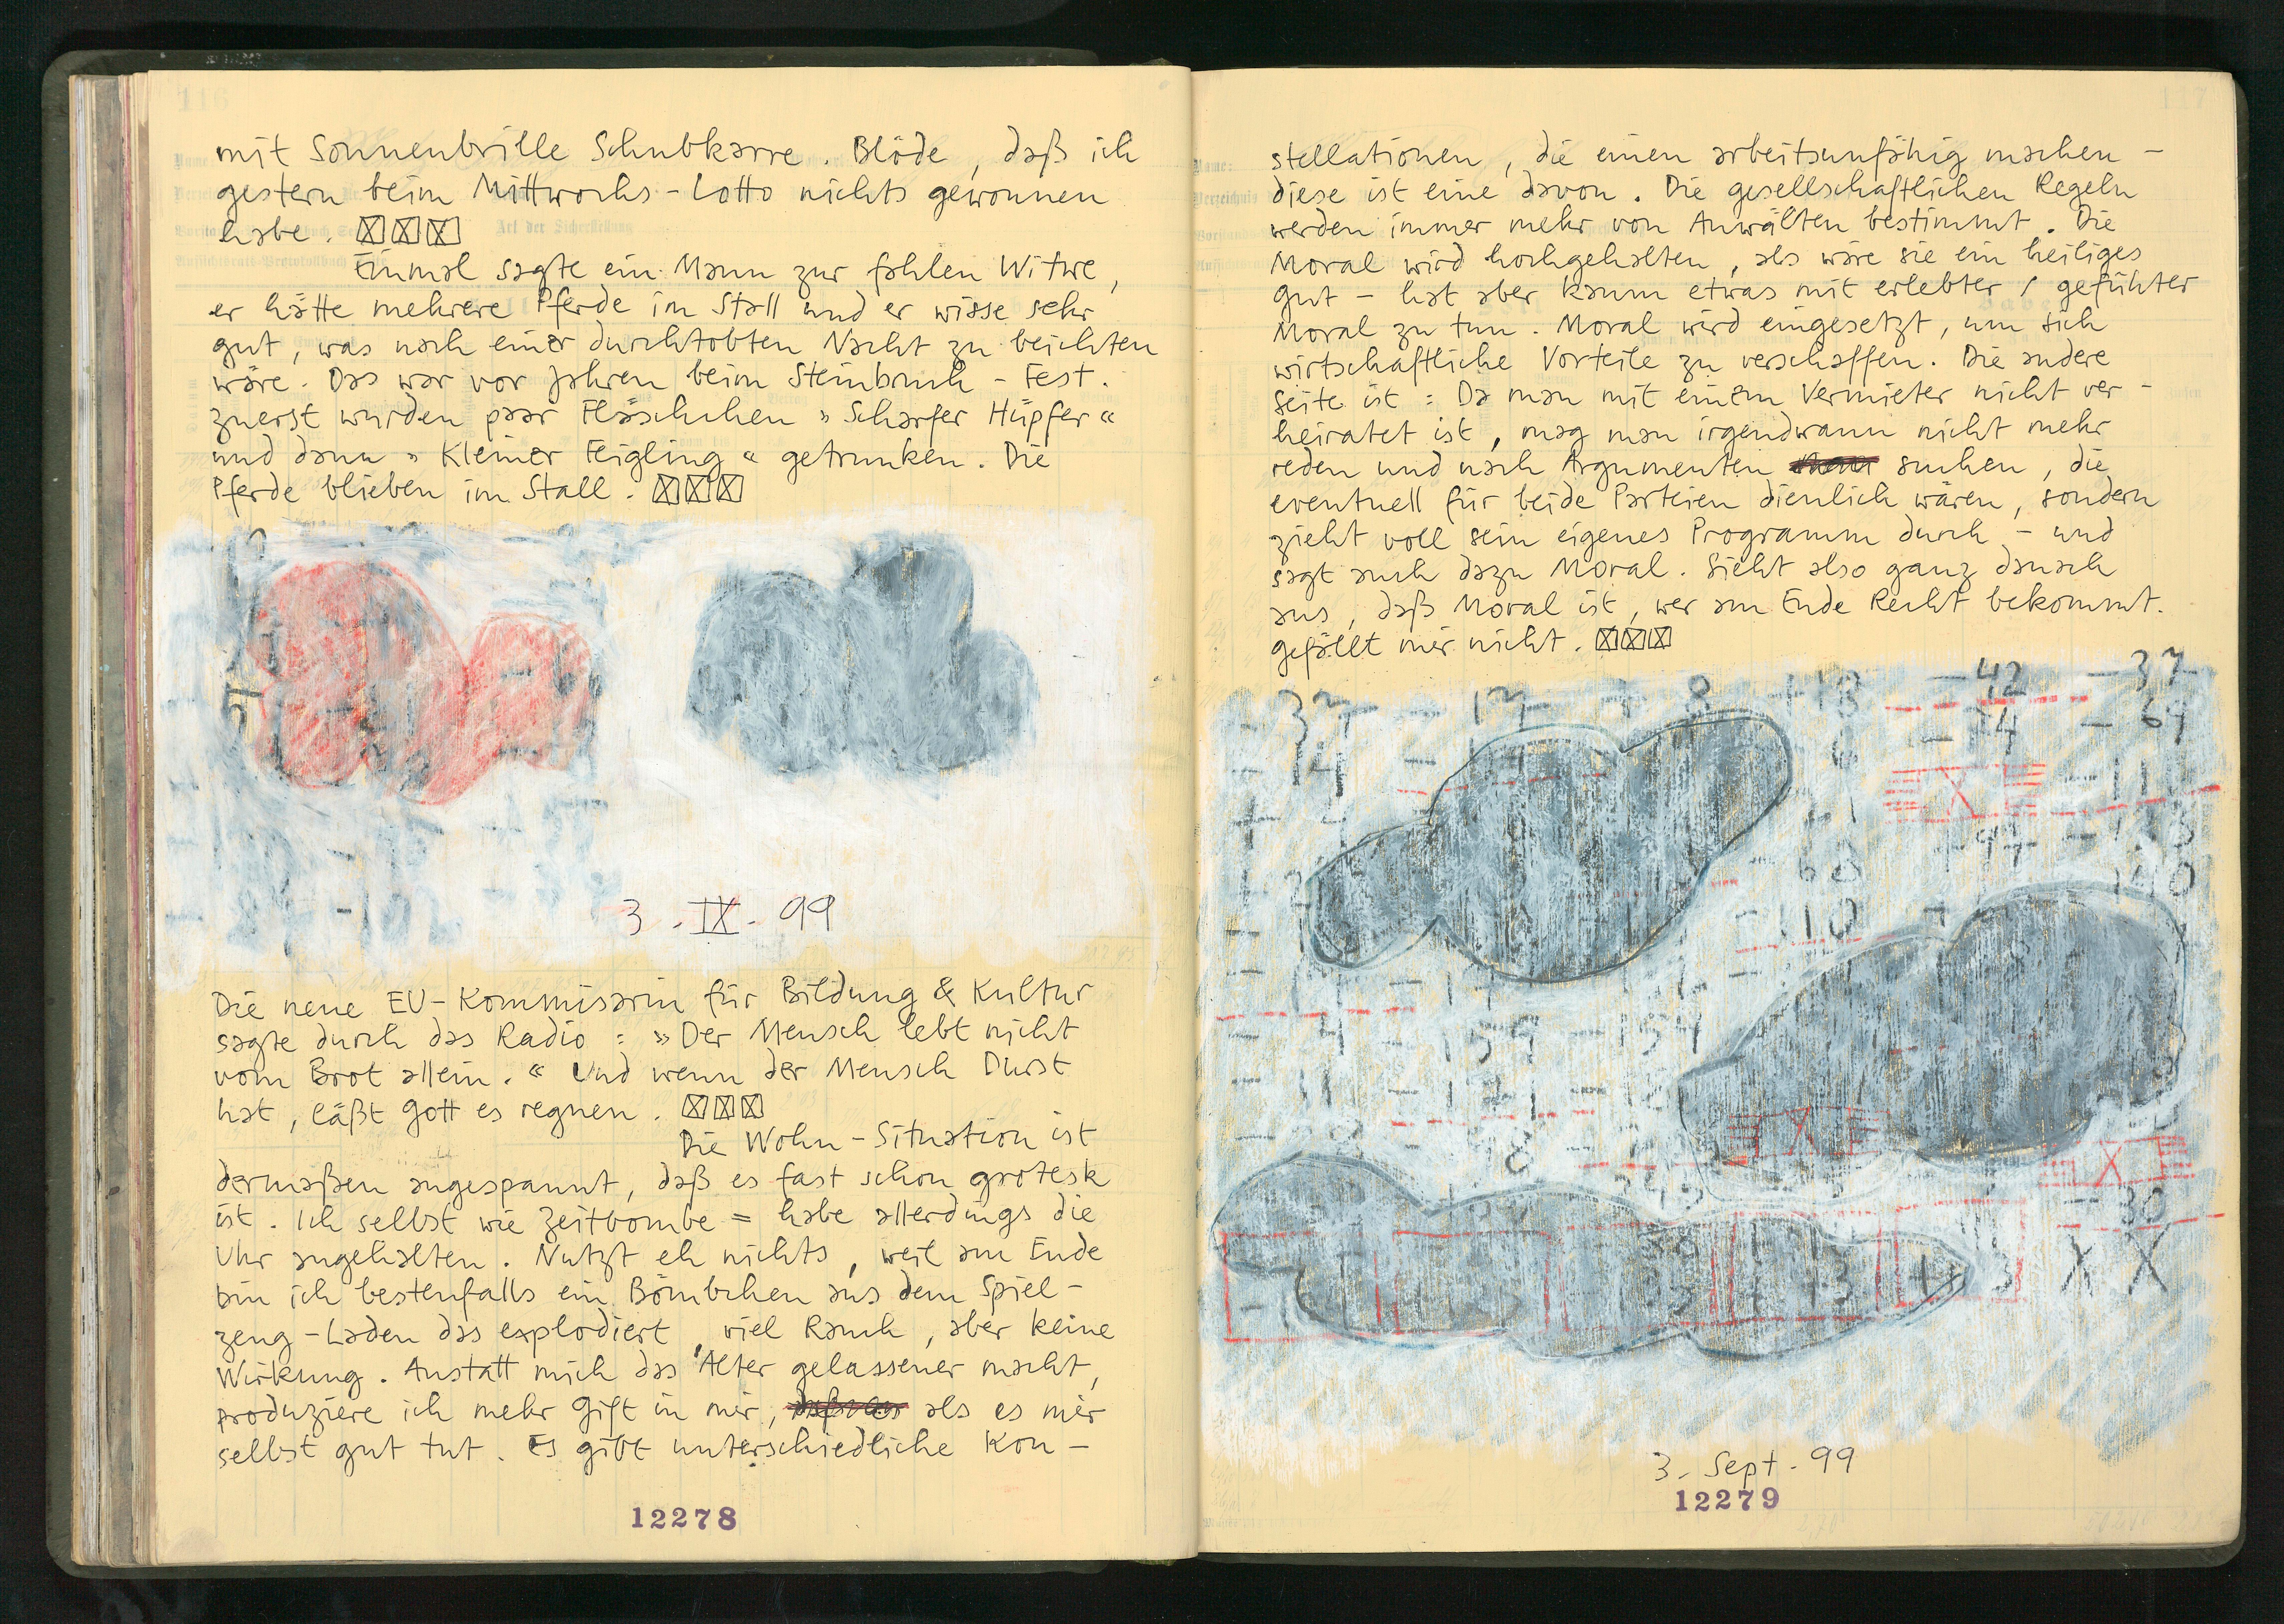 mit Sonnenbrille Schubkarre. Blöde, daß ich
gestern beim Mittwochs-Lotto nichts gewonnen
habe. ☒☒☒
Einmal sagte ein Mann zur fahlen Witwe,
er hätte mehrere Pferde im Stall und er wisse sehr
gut, was nach einer durchtobten Nacht zu beichten
wäre. Das war vor Jahren beim Steinbruch-Fest.
zuerst wurden paar Fläschchen »Scharfer Hüpfer«
und dann »Kleiner Feigling« getrunken. Die
Pferde blieben im Stall. ☒☒☒
3.-IX-99
Die neue EU-Kommisarin für Bildung & Kultur
sagte durch das Radio: »Der Mensch lebt nicht
vom Brot allein.« Und wenn der Mensch Durst
hat, läßt Gott es regnen. ☒☒☒
Die Wohn-Situation ist
dermaßen angespannt, daß es fast schon grotesk
ist. Ich selbst wie Zeitbombe = habe allerdings die
Uhr angehalten. Nutzt eh nichts, weil am Ende
bin ich bestenfalls ein Bömbchen aus dem Spiel-
zeug-Laden das explodiert, viel Rauch, aber keine
Wirkung. Anstatt mich das Alter gelassener macht,
produziere ich mehr Gift in mir, als es mir
selbst gut tut. Es gibt unterschiedliche Kon-
12278
stellationen, die einen arbeitsunfähig machen -
diese ist eine davon. Die gesellschaftlichen Regeln
werden immer mehr von Anwälten bestimmt. Die
Moral wird hochgehalten, als wäre sie ein heiliges
Gut - hat aber kaum etwas mit erlebter / geführter
Moral zu tun. Moral wird eingesetzt, um sich
wirtschaftliche Vorteile zu verschaffen. Die andere
Seite ist: Da man mit einem Vermieter nicht ver-
heiratet ist, mag man irgendwann nicht mehr
reden und nach Argumenten suchen, die
eventuell für beide Parteien dienlich wären, sondern
zieht voll sein eigenes Programm durch - und
sagt auch dazu Moral. Sieht also ganz danach
aus, daß Moral ist, wer am Ende Recht bekommt.
gefällt mir nicht. ☒☒☒
-42 -37
3. Sept. 99
12279